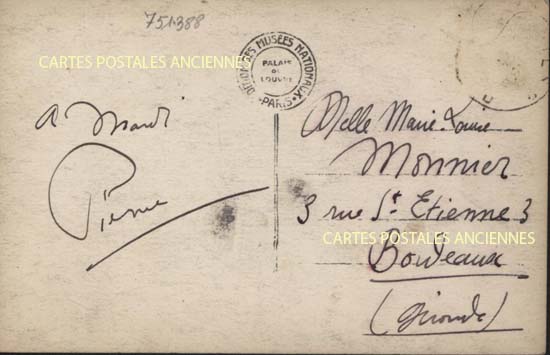 751388
CARTES POSTALES ANCIENNES
DROITS DES MUSÉES NATIONAUX
PALAIS
DU
LOUVRE
PARIS
A Mardi
Pierre
Melle Marie-Louise
Monnier
3 rue St Etienne 3
CARTES POSTALES ANCIENNES
Bordeaux
(Gironde)